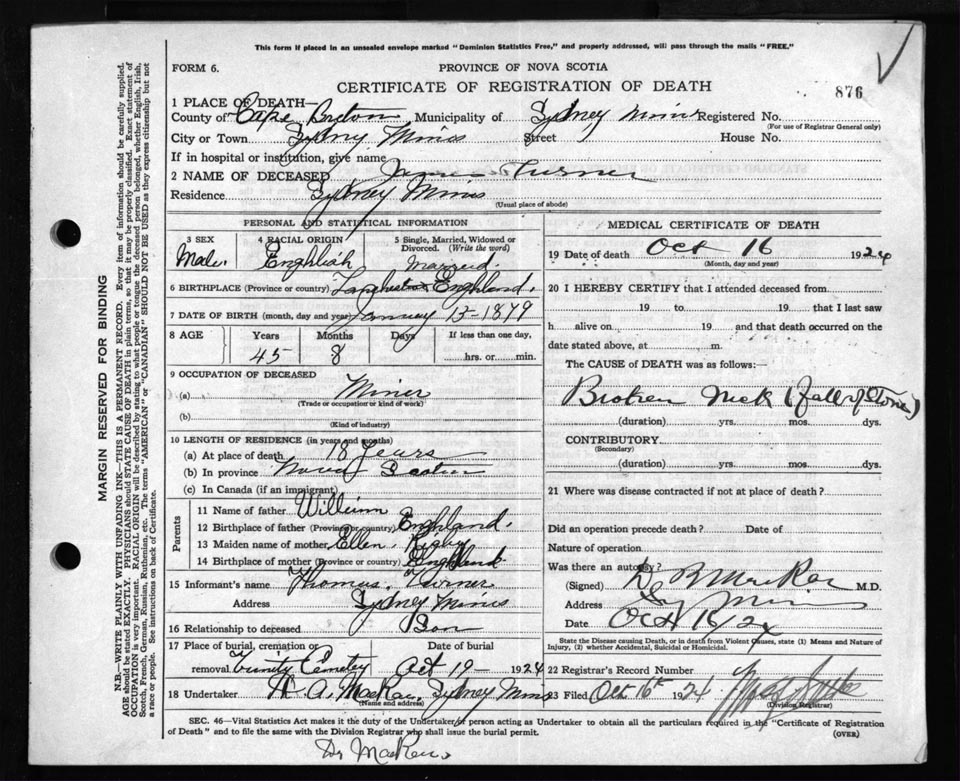 This form if placed in an unsealed envelope marked "Dominion Statistics Free," and properly addressed, will pass through the mails "FREE."
FORM 6.
PROVINCE OF NOVA SCOTIA
CERTIFICATE OF REGISTRATION OF DEATH
876
1 PLACE OF DEATH—
County of Cape Breton Municipality of Sydney Mines Registered No.
(For use of Registrar General only)
City or Town Sydney Mines Street House No.
If in hospital or institution, give name
2 NAME OF DECEASED Turner
Residence Sydney Mines
(Usual place of abode)
PERSONAL AND STATISTICAL INFORMATION
3 SEX 4 RACIAL ORIGIN 5 Single, Married, Widowed or Divorced. (Write the word)
Male. English Married.
6 BIRTHPLACE (Province or country) England.
7 DATE OF BIRTH (month, day and year) January 13-1879
8 AGE Years Months Days If less than one day,
45 8 hrs. or min.
9 OCCUPATION OF DECEASED
(a) Miner
(Trade or occupation or kind of work)
(b)
(Kind of industry)
10 LENGTH OF RESIDENCE (in years and months)
(a) At place of death 18 Years
(b) In province Nova Scotia
(c) In Canada (if an immigrant)
Parents
11 Name of father William
12 Birthplace of father (Province or country) England.
13 Maiden name of mother Ellen Rigby
14 Birthplace of mother (Province or country) England
15 Informant's name Thomas Turner
Address Sydney Mines
16 Relationship to deceased Son
17 Place of burial, cremation or removal Date of burial
Trinity Cemetery Oct 19- 1924
18 Undertaker H. A. MacRae, Sydney Mines
(Name and address)
MEDICAL CERTIFICATE OF DEATH
19 Date of death Oct 16 1924
(Month, day and year)
20 I HEREBY CERTIFY that I attended deceased from
19 to 19 that I last saw
h alive on 19 and that death occurred on the
date stated above, at m.
The CAUSE OF DEATH was as follows:—
Broken neck (fall of stone)
(duration) yrs. mos. dys.
CONTRIBUTORY
(Secondary)
(duration) yrs. mos. dys.
21 Where was disease contracted if not at place of death?
Did an operation precede death? Date of
Nature of operation
Was there an autopsy?
(Signed) M.D.
Address Sy Mines
Date Oct 16/24
State the Disease causing Death, or in death from Violent Causes, state (1) Means and Nature of Injury, (2) whether Accidental, Suicidal or Homicidal.
22 Registrar's Record Number
23 Filed Oct 16th 1924
(Division Registrar)
SEC. 46—Vital Statistics Act makes it the duty of the Undertaker or person acting as Undertaker to obtain all the particulars required in the "Certificate of Registration
of Death" and to file the same with the Division Registrar who shall issue the burial permit.
(OVER)
Dr MacRae
MARGIN RESERVED FOR BINDING
N.B.—WRITE PLAINLY WITH UNFADING INK—THIS IS A PERMANENT RECORD. Every item of information should be carefully supplied.
AGE should be stated EXACTLY. PHYSICIANS should STATE CAUSE OF DEATH in plain terms, so that it may be properly classified. Exact statement of
OCCUPATION is very important. RACIAL ORIGIN will be described by stating to what people or tongue the deceased person belonged, whether English, Irish,
Scotch, French, German, Russian, Ruthenian, etc. The terms "AMERICAN" or "CANADIAN" SHOULD NOT BE USED as they express citizenship but not
a race or people. See instructions on back of Certificate.